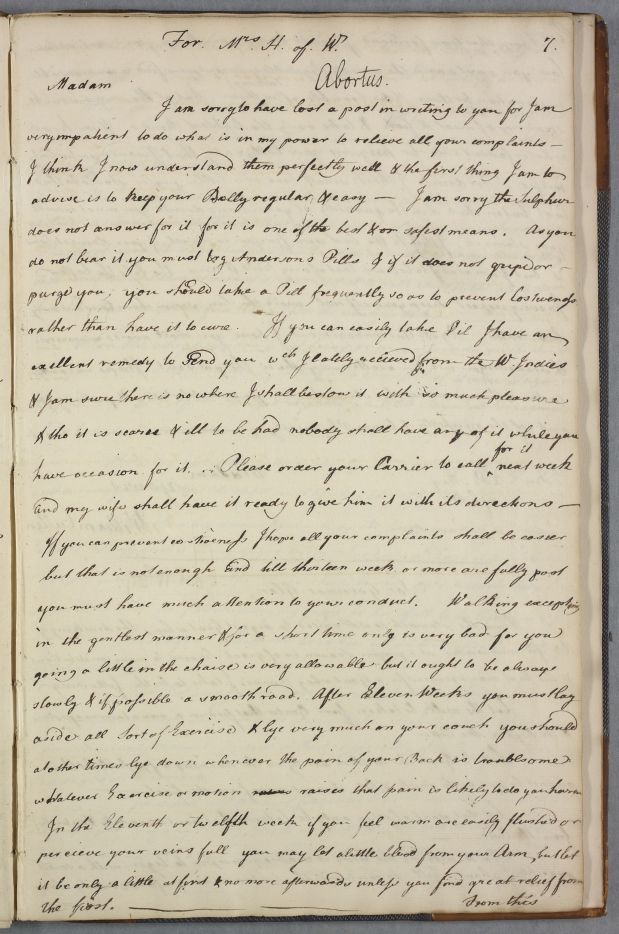 For. Mrs H. of W. 7.
Abortus.
Madam
I am sorry to have lost a post in writing to you for I am
very impatient to do what is in my power to relieve all your complaints —
I think I now understand them perfectly well & the first thing I am to
advise is to keep your Belly regular, & easy — I am sorry the Sulphur
does not answer for it for it is one of the best & or safest means. As you
do not bear it you must try Andersons Pills & if it does not gripe or —
purge you, you should take a Pill frequently so as to prevent Costiveness
rather than have it to cure. If you can easily take Oil I have an
excellent remedy to Send you wch I lately recieved from the W. Indies
& I am sure there is no where I shall bestow it with so much pleasure
& tho it is scarce & ill to be had nobody shall have any of it while you
have occasion for it. Please order your Carrier to call for it next week
and my wife shall have it ready to give him it with its directions —
If you can prevent costiveness I hope all your complaints shall be easier
but that is not enough and till thirteen week or more are fully past
you must have much attention to your conduct. Walking excepting
in the gentlest manner & for a short time only is very bad for you
going a little in the chaise is very allowable but it ought to be always
slowly & if possible a smooth road. After Eleven Weeks you must lay
aside all Sort of Exercise & lye very much on your couch you should
at other times lye down whenever the pain of your Back is troublesome
whatever Exercise or motion raises that pain is likely to do you harm
In the Eleventh or twelfth week if you feel warm are easily flushed or
percieve your veins full you may let a little blood from your Arm, but let
it be only a little at first & no more afterwards unless you find great relief from
the first. — From this